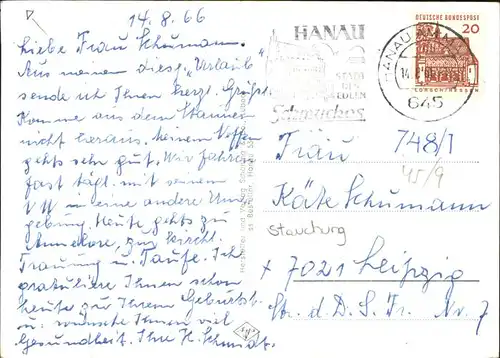 14.8.66
Liebe Frau Schumann.
Aus meinem diesj. "Urlaub"
sende ich Ihnen herzl. Grüße.
Komme aus dem Staunen
nicht heraus. Meinem Neffen
gehts sehr gut. Wir fahren
fast tägl. mit seinem
VW in eine andere Um
gebung. Heute gehts zu
Annelore, zur kirchl.
Trauung u. Taufe. Ich
gratuliere Ihnen schon
heute zu Ihrem Geburtst.
u. wünsche Ihnen viel
Gesundheit. Ihre H. Schmidt.
HANAU
STADT
DES
EDLEN
Schmuckes
HANAU
645
DEUTSCHE BUNDESPOST
20
LORSCH/HESSEN
748/1
45/9
Frau
Käte Schumann
7021 Leipzig
Str. d. D. S. Fr. Nr. 7